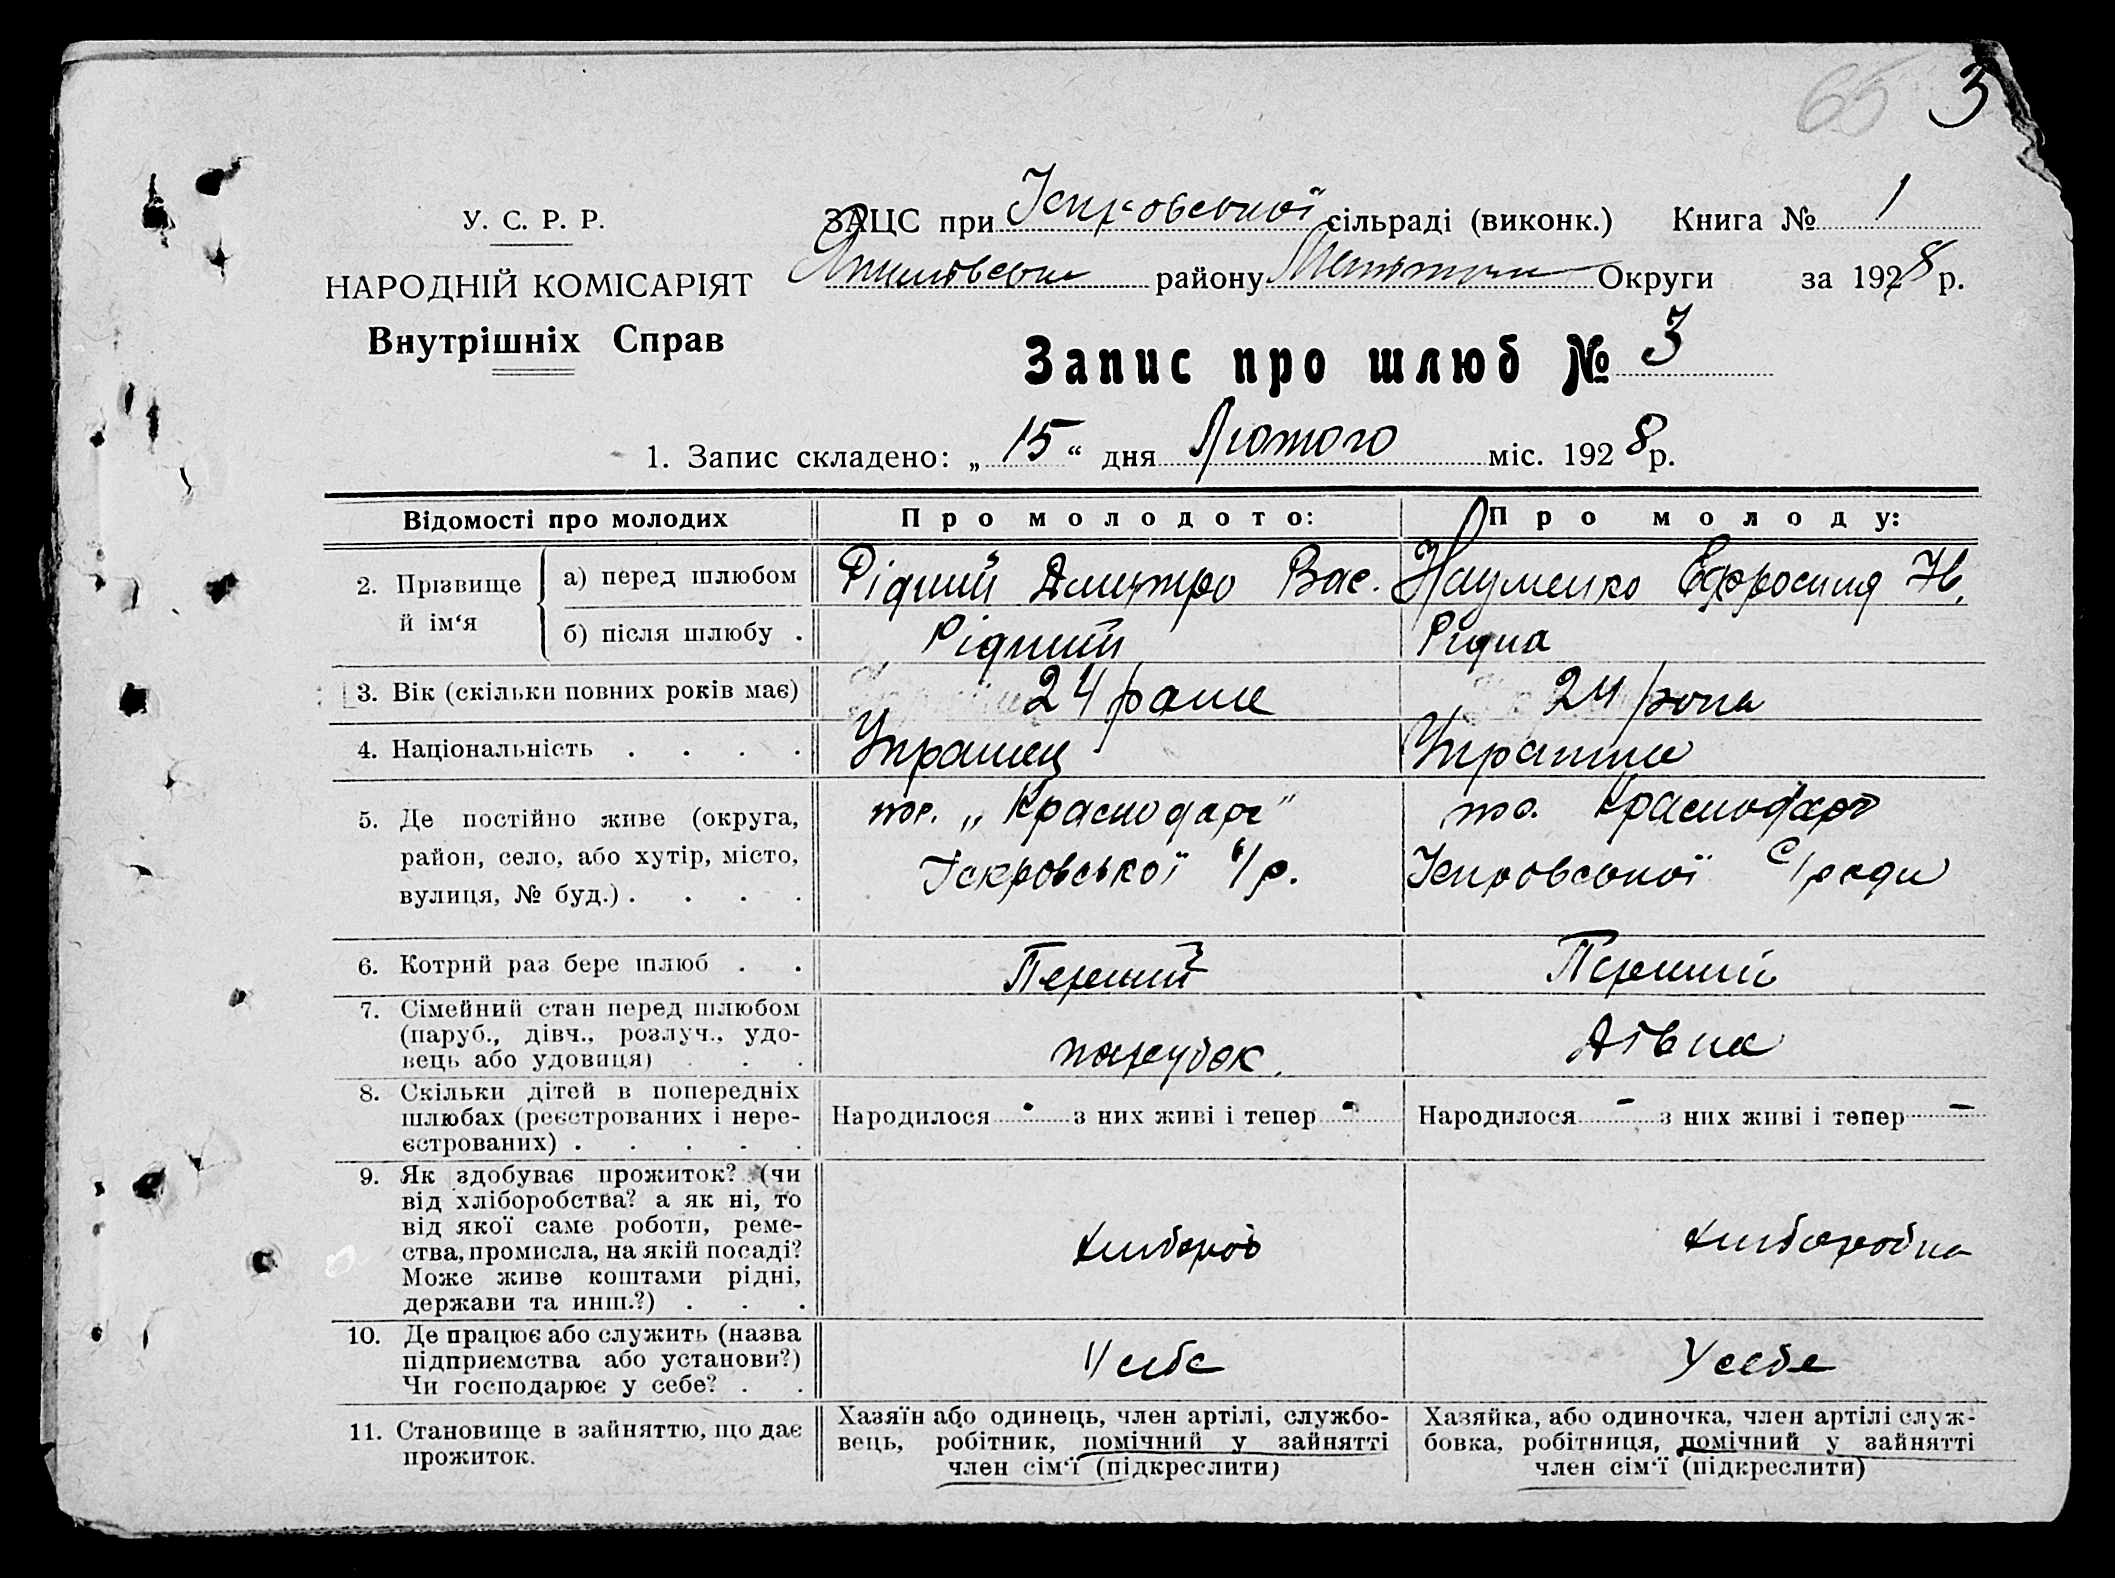 65 3
У. С. Р. Р.
НАРОДНІЙ КОМІСАРІЯТ
Внутрішніх Справ
ЗАЦС при Іскровської сільраді (виконк.) Книга № 1
району Округи за 1928 р.
Запис про шлюб № 3
1. Запис складено: „ 15 “ дня Лютого міс. 1928 р.
Відомості про молодих
Про молодого:
Про молоду:
2. Прізвище й ім‘я
а) перед шлюбом
Рідний Дмитро Вас.
Науменко Єфросинія Ів.
б) після шлюбу .
Рідний
Рідна
3. Вік (скільки повних років має)
24 роки
24 роки
4. Національність . . . .
Украінец
Украінка
5. Де постійно живе (округа,
район, село, або хутір, місто,
вулиця, № буд.) . . . .
„Краснодарг“
Іскровської с/р.
Краснодарг
Іскровської С/ради
6. Котрий раз бере шлюб . .
Перший
Перший
7. Сімейний стан перед шлюбом
(паруб., дівч., розлуч., удо-
вець або удовиця) . . .
парубок.
Дівка
8. Скільки дітей в попередніх
шлюбах (реєстрованих і нере-
єстрованих) . . . . .
Народилося - з них живі і тепер -
Народилося - з них живі і тепер -
9. Як здобуває прожиток? (чи
від хліборобства? а як ні, то
від якої саме роботи, реме-
ства, промисла, на якій посаді?
Може живе коштами рідні,
держави та инш.?) . . .
хлибороб
хлиборобка
10. Де працює або служить (назва
підприємства або установи?)
Чи господарює у себе? . .
У себе
У себе
11. Становище в зайняттю, що дає
прожиток.
Хазяїн або одинець, член артілі, службо-
вець, робітник, помічний у зайнятті
член сім‘ї (підкреслити)
Хазяйка, або одиночка, член артілі служ-
бовка, робітниця, помічний у зайнятті
член сім‘ї (підкреслити)